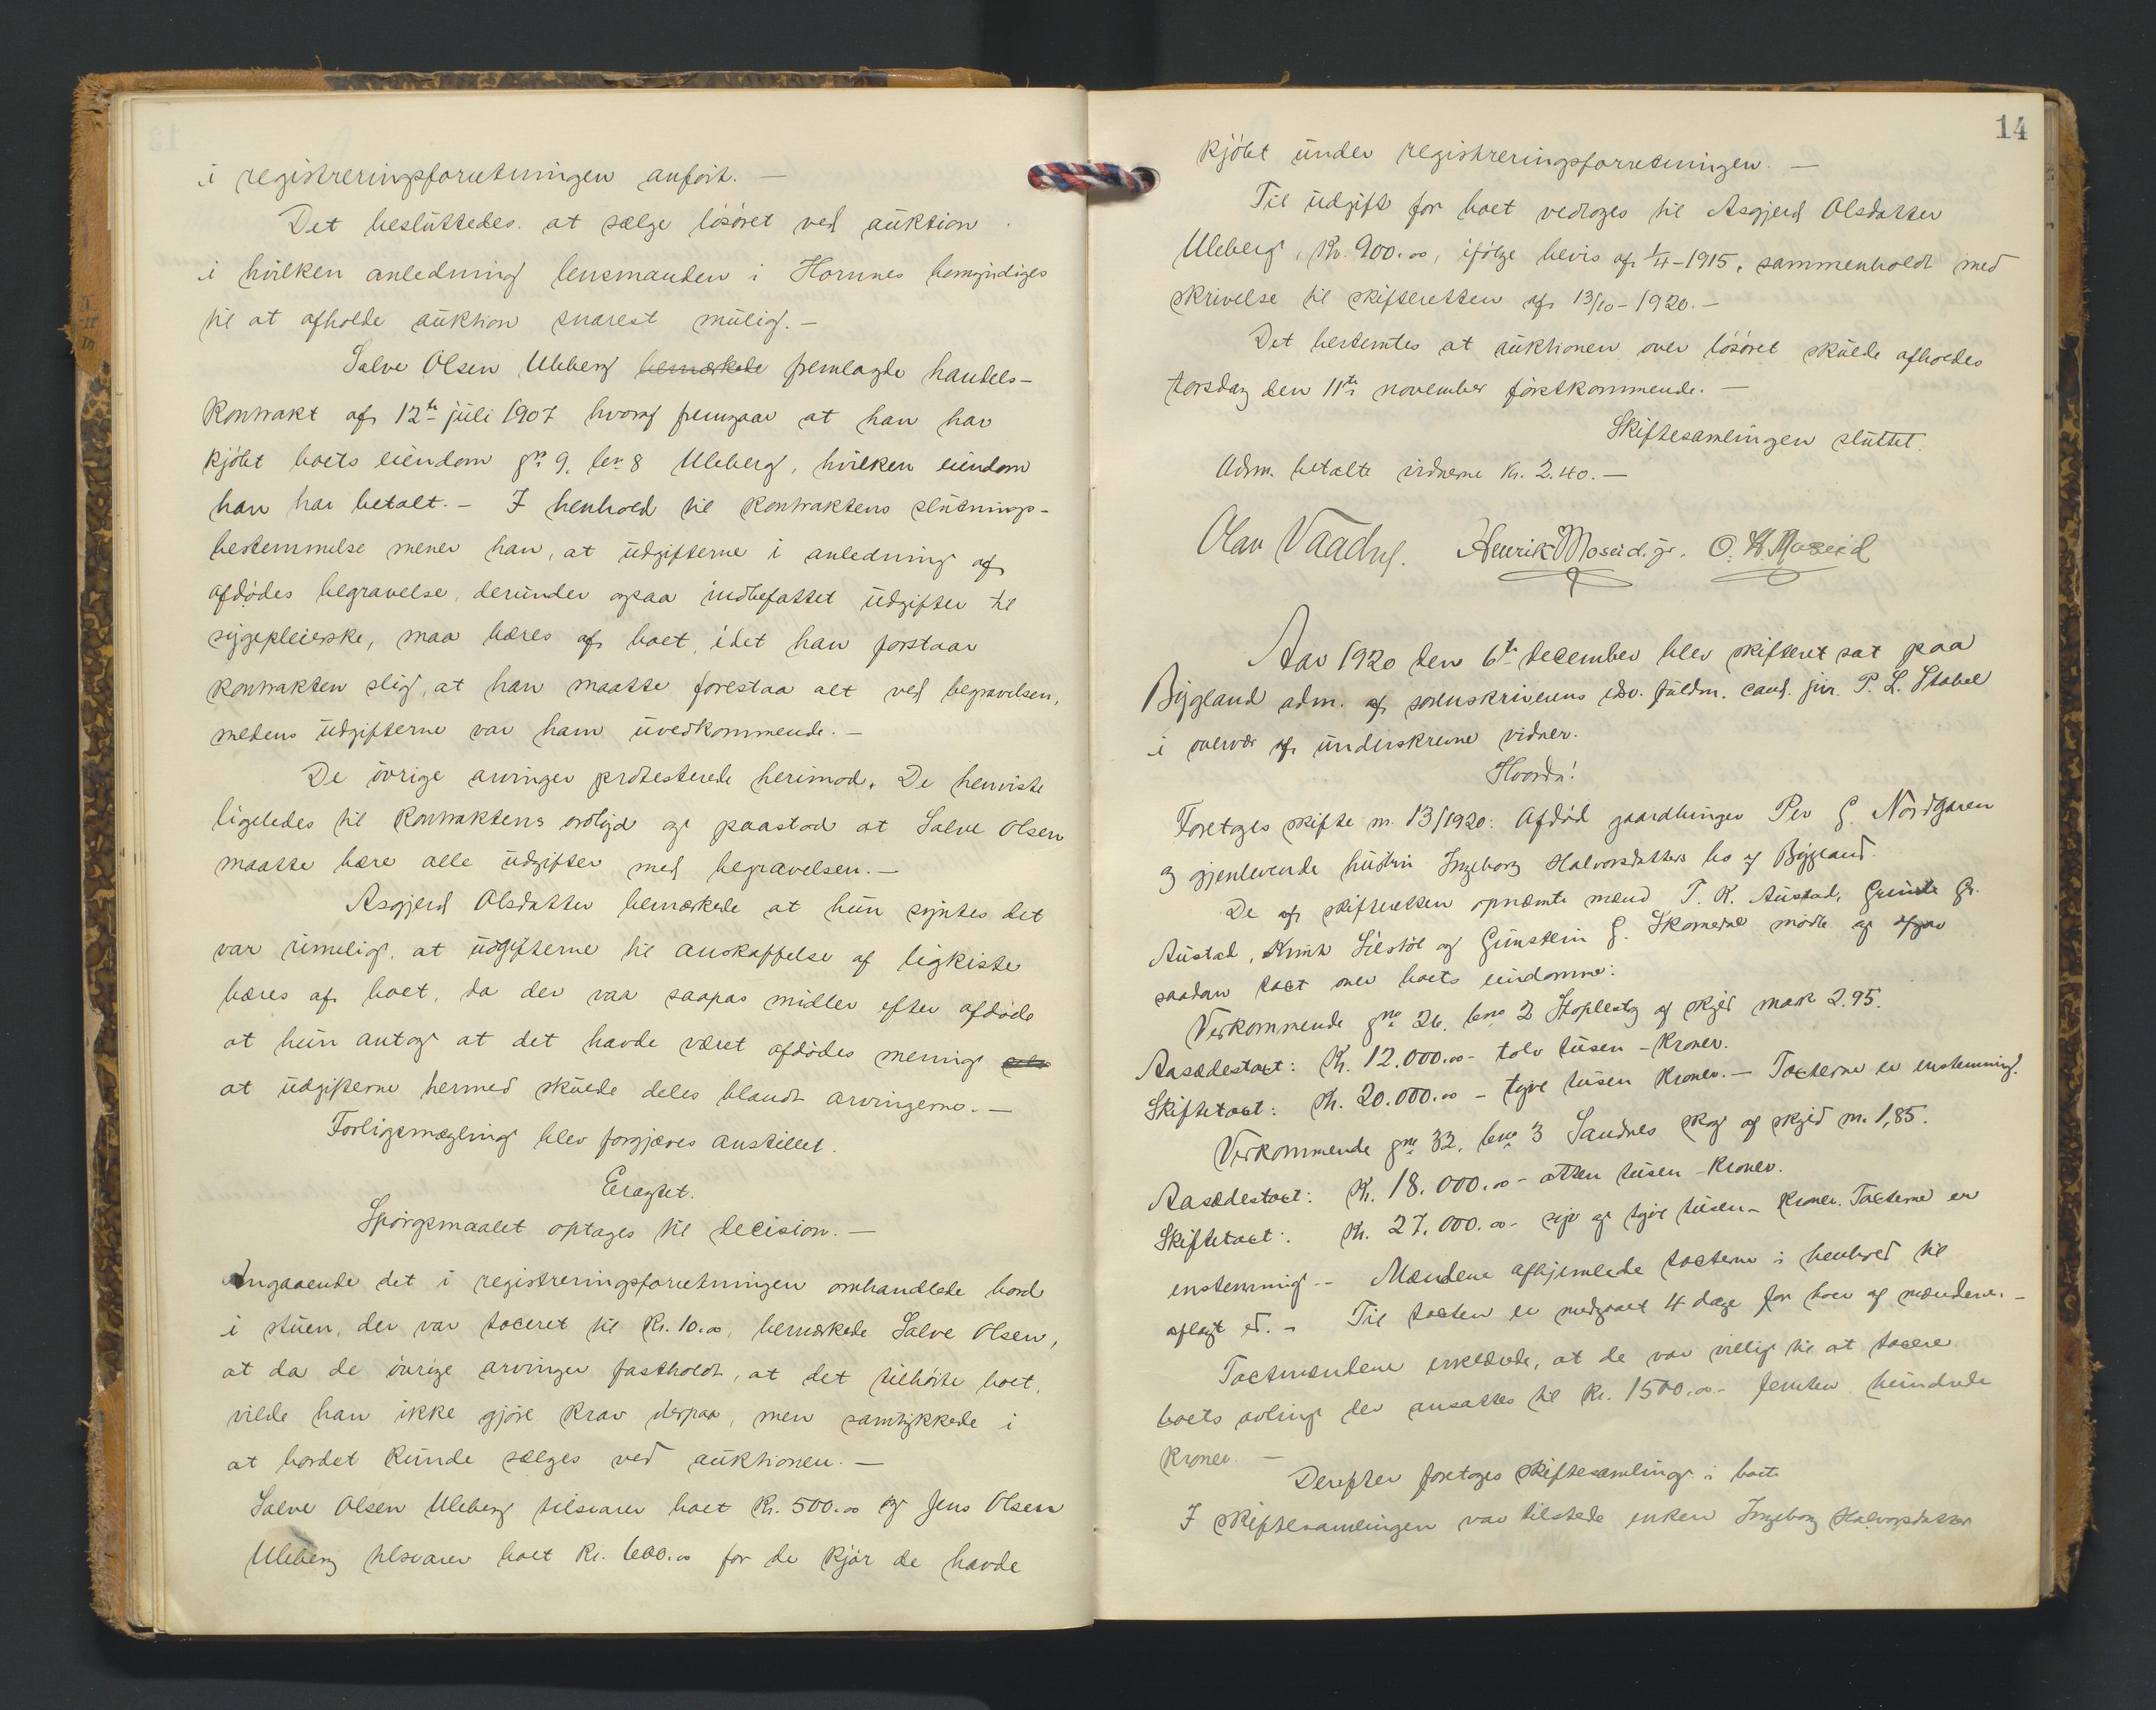 i registreringsforretningen anført. —
Det besluttedes at sælge løsøret ved auktion
i hvilken anledning lensmanden i Hornnes bemyndiges
til at afholde auktion snarest mulig. —
Salve Olsen Uleberg bemærkede fremlagde handels-
kontrakt af 12te juli 1907 hvoraf fremgaar at han har
kjøbt boets eiendom gno 9. bno 8 Uleberg, hvilken eiendom
han har betalt. — I henhold til kontraktens slutnings-
bestemmelse mener han, at udgifterne i anledning af
afdødes begravelse, derunder ogsaa indbefattet udgifter til
sygepleierske, maa bæres af boet, idet han forstaar
kontrakten slig, at han maatte forestaa alt ved begravelsen,
medens udgifterne var ham uvedkommende. —
De øvrige arvinger protesterede herimod. De henviste
ligeledes til kontraktens ordlyd og paastod at Salve Olsen
maatte bære alle udgifter med begravelsen. —
Asgjerd Olsdatter bemærkede at hun syntes det
var rimelig, at udgifterne til anskaffelse af ligkiste
bæres af boet, da der var saapas midler efter afdøde
at hun antog at det havde været afdødes mening
at udgifterne hermed skulde deles blandt arvingerne. —
Forligsmægling blev forgjæves anstillet.
Eragtet.
Spørgsmaalet optages til decision. —
Angaaende det i registreringsforretningen omhandlede bord
i stuen, der var taxeret til Kr. 10.00, bemærkede Salve Olsen,
at da de øvrige arvinger fastholdt, at det tilhørte boet,
vilde han ikke gjøre krav derpaa, men samtykkede i
at bordet kunde sælges ved auktionen. —
Salve Olsen Uleberg tilsvarer boet Kr. 500.00 og Jens Olsen
Uleberg tilsvarer boet Kr. 600.00 for de kjør de havde
14
kjøbt under registreringsforretningen. —
Til udgift for boet vedtoges til Asgjerd Olsdatter
Uleberg, Kr. 900.00, ifølge bevis af 1/4-1915, sammenholdt med
skrivelse til skifteretten af 13/10-1920. —
Det bestemtes at auktionen over løsøret skulde afholdes
torsdag den 11te november førstkommende. —
Skiftesamlingen sluttet.
Adm. betalte vidnerne Kr. 2.40. —
Olav Henrik Moseid. jr. O. H. Moseid
Aar 1920 den 6te december blev skifteret sat paa
Bygland adm. af sorenskriverens edsv. fuldm. cand. jur. P. L. Stabel
i overvær af underskrevne vidner.
Hvorda!
Foretoges skifte nr. 13/1920: Afdød gaardbruger Per G. Nordgaren
og gjenlevende hustru Ingeborg Halvorsdatters bo af Bygland.
De af skifteretten opnævnte mænd T. K. Austad, Gr.
Austad, Knut og Gunstein G. Skomedal mødte og afgav
saadan taxt over boets eiendomme:
Vedkommende gno 26. bno 2 af skyld mark 2.95.
Aasædestaxt: Kr. 12.000.00 - tolv tusen - kroner.
Skiftetaxt: Kr. 20.000.00 - tyve tusen kroner. — Taxterne er enstemmig.
Vedkommende gno 32. bno 3 Sandnes skog af skyld m. 1,85.
Aasædestaxt: Kr. 18.000.00 - atten tusen - kroner.
Skiftetaxt: Kr. 27.000.00 - syv og tyve tusen - kroner. Taxterne er
enstemmig. - Mændene afhjemlede taxterne i henhold til
aflagt ed. - Til taxten er medgaaet 4 dage for hver af mændene. -
Taxtmændene erklærede, at de var villig til at taxere
boets avling der ansattes til Kr. 1500.00 - femten hundrede
kroner. —
Derefter foretoges skiftesamling i boet.
I skiftesamlingen var tilstede enken Ingeborg Halvorsdatter